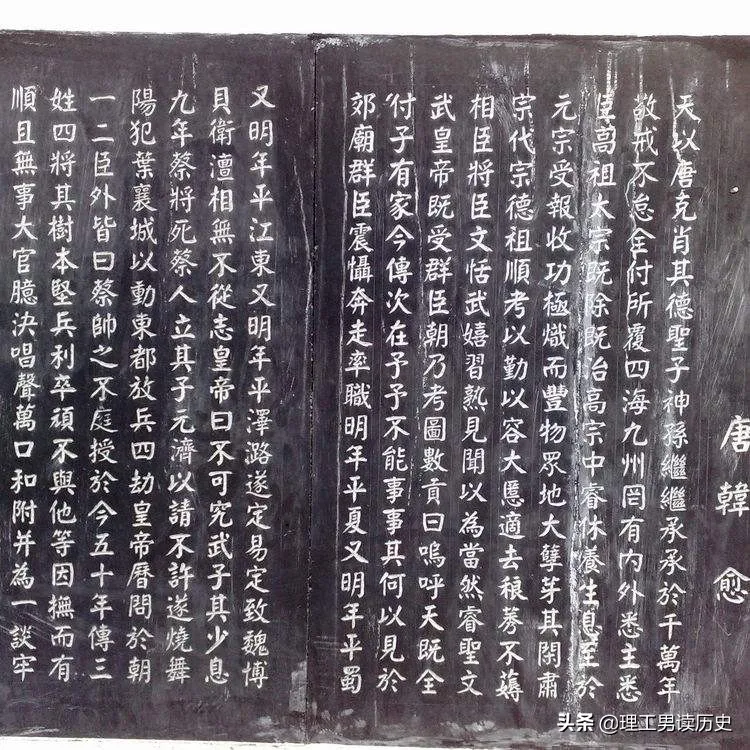 唐韓愈
天以唐克肖其德聖子神孫繼繼承承於千萬年
敬戒不怠全付所覆四海九州罔有內外悉主悉
臣高祖太宗既除既治高宗中睿休養生息至於
元宗受報收功極熾而豐物眾地大孽芽其閑肅
宗代宗德祖順考以勤以容大慝適去稂莠不薅
相臣將臣文恬武嬉習熟見聞以為當然睿聖文
武皇帝既受群臣朝乃考圖數貢曰嗚呼天既全
付子有家今傳次在予予不能事事其何以見於
郊廟群臣震懾奔走率職明年平夏又明年平蜀
又明年平江東又明年平澤潞遂定易定致魏博
貝衛澶相無不從志皇帝曰不可究武子其少息
九年蔡將死蔡人立其子元濟以請不許遂燒舞
陽犯葉襄城以動東都放兵四劫皇帝曆問於朝
一二臣外皆曰蔡帥之不庭授於今五十年傳三
姓四將其樹本堅兵利卒頑不與他等因撫而有
順且無事大官臆決唱聲萬口和附并為一談牢
头条 @理工男读历史